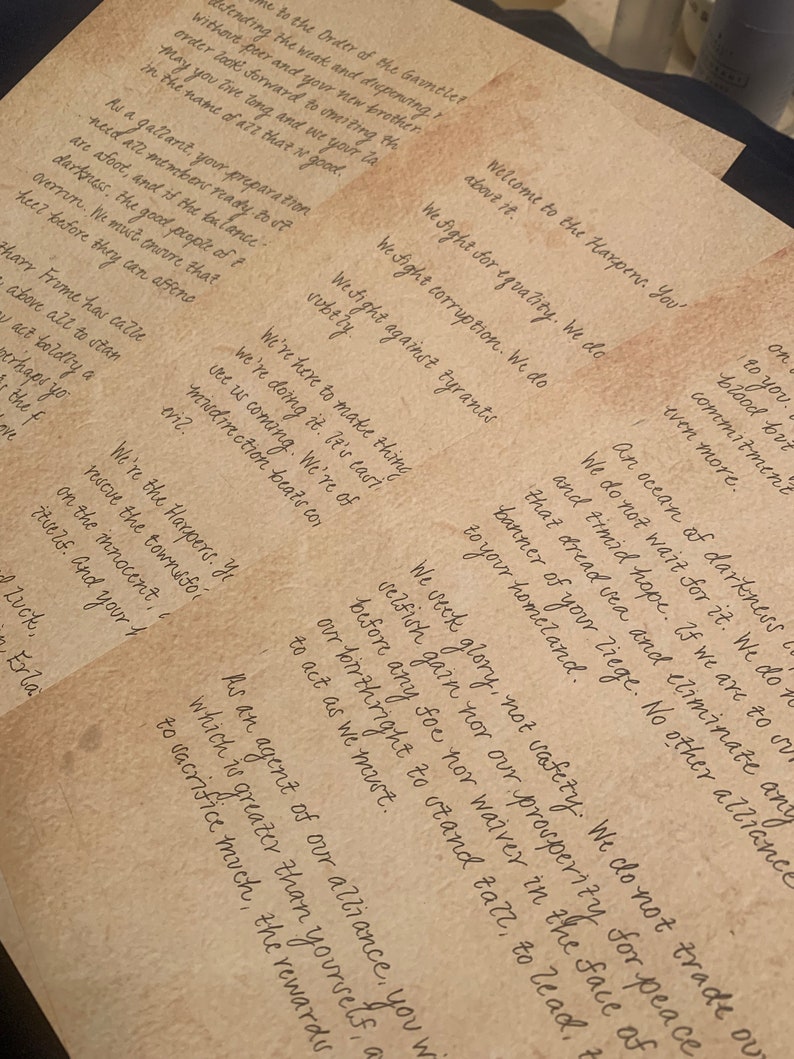 ome to the Order of the Gauntlet
defending the weak and dispensing
without peer and your new brother
order look forward to smiting th
may you live long and use your la
in the name of all that is good.
As a gallant, your preparation
need all members ready to st
are afoot, and if the balance
darkness, the good people of t
overrun. We must ensure that
heel before they can affenc
tharr Frime has calle
above all to stan
act boldly a
perhaps yo
is the f
ove
Luck,
Welcome to the Harpers. You'
about it.
We fight for equality. We do
We fight corruption. We do
We fight against tyrants
subtly.
We're here to make thing
we're doing it. It's easi
see us coming. We're of
misdirection beats co
evil.
We're the Harpers. Ye
rescue the townsfo
on the innocent,
itself. And your
on
to you.
blood but
commitment
even more.
An ocean of darkness
We do not wait for it. We do n
and timid hope. If we are to sur
that dread sea and eliminate any
banner of your liege. No other alliance
to your homeland.
We seek glory, not safety. We do not trade ou
selfish gain nor our prosperity for peace
before any foe nor waiver in the face of
our birthright to stand tall, to lead, t
to act as we must.
As an agent of our alliance, you wi
which is greater than yourself, a
to sacrifice much, the rewards